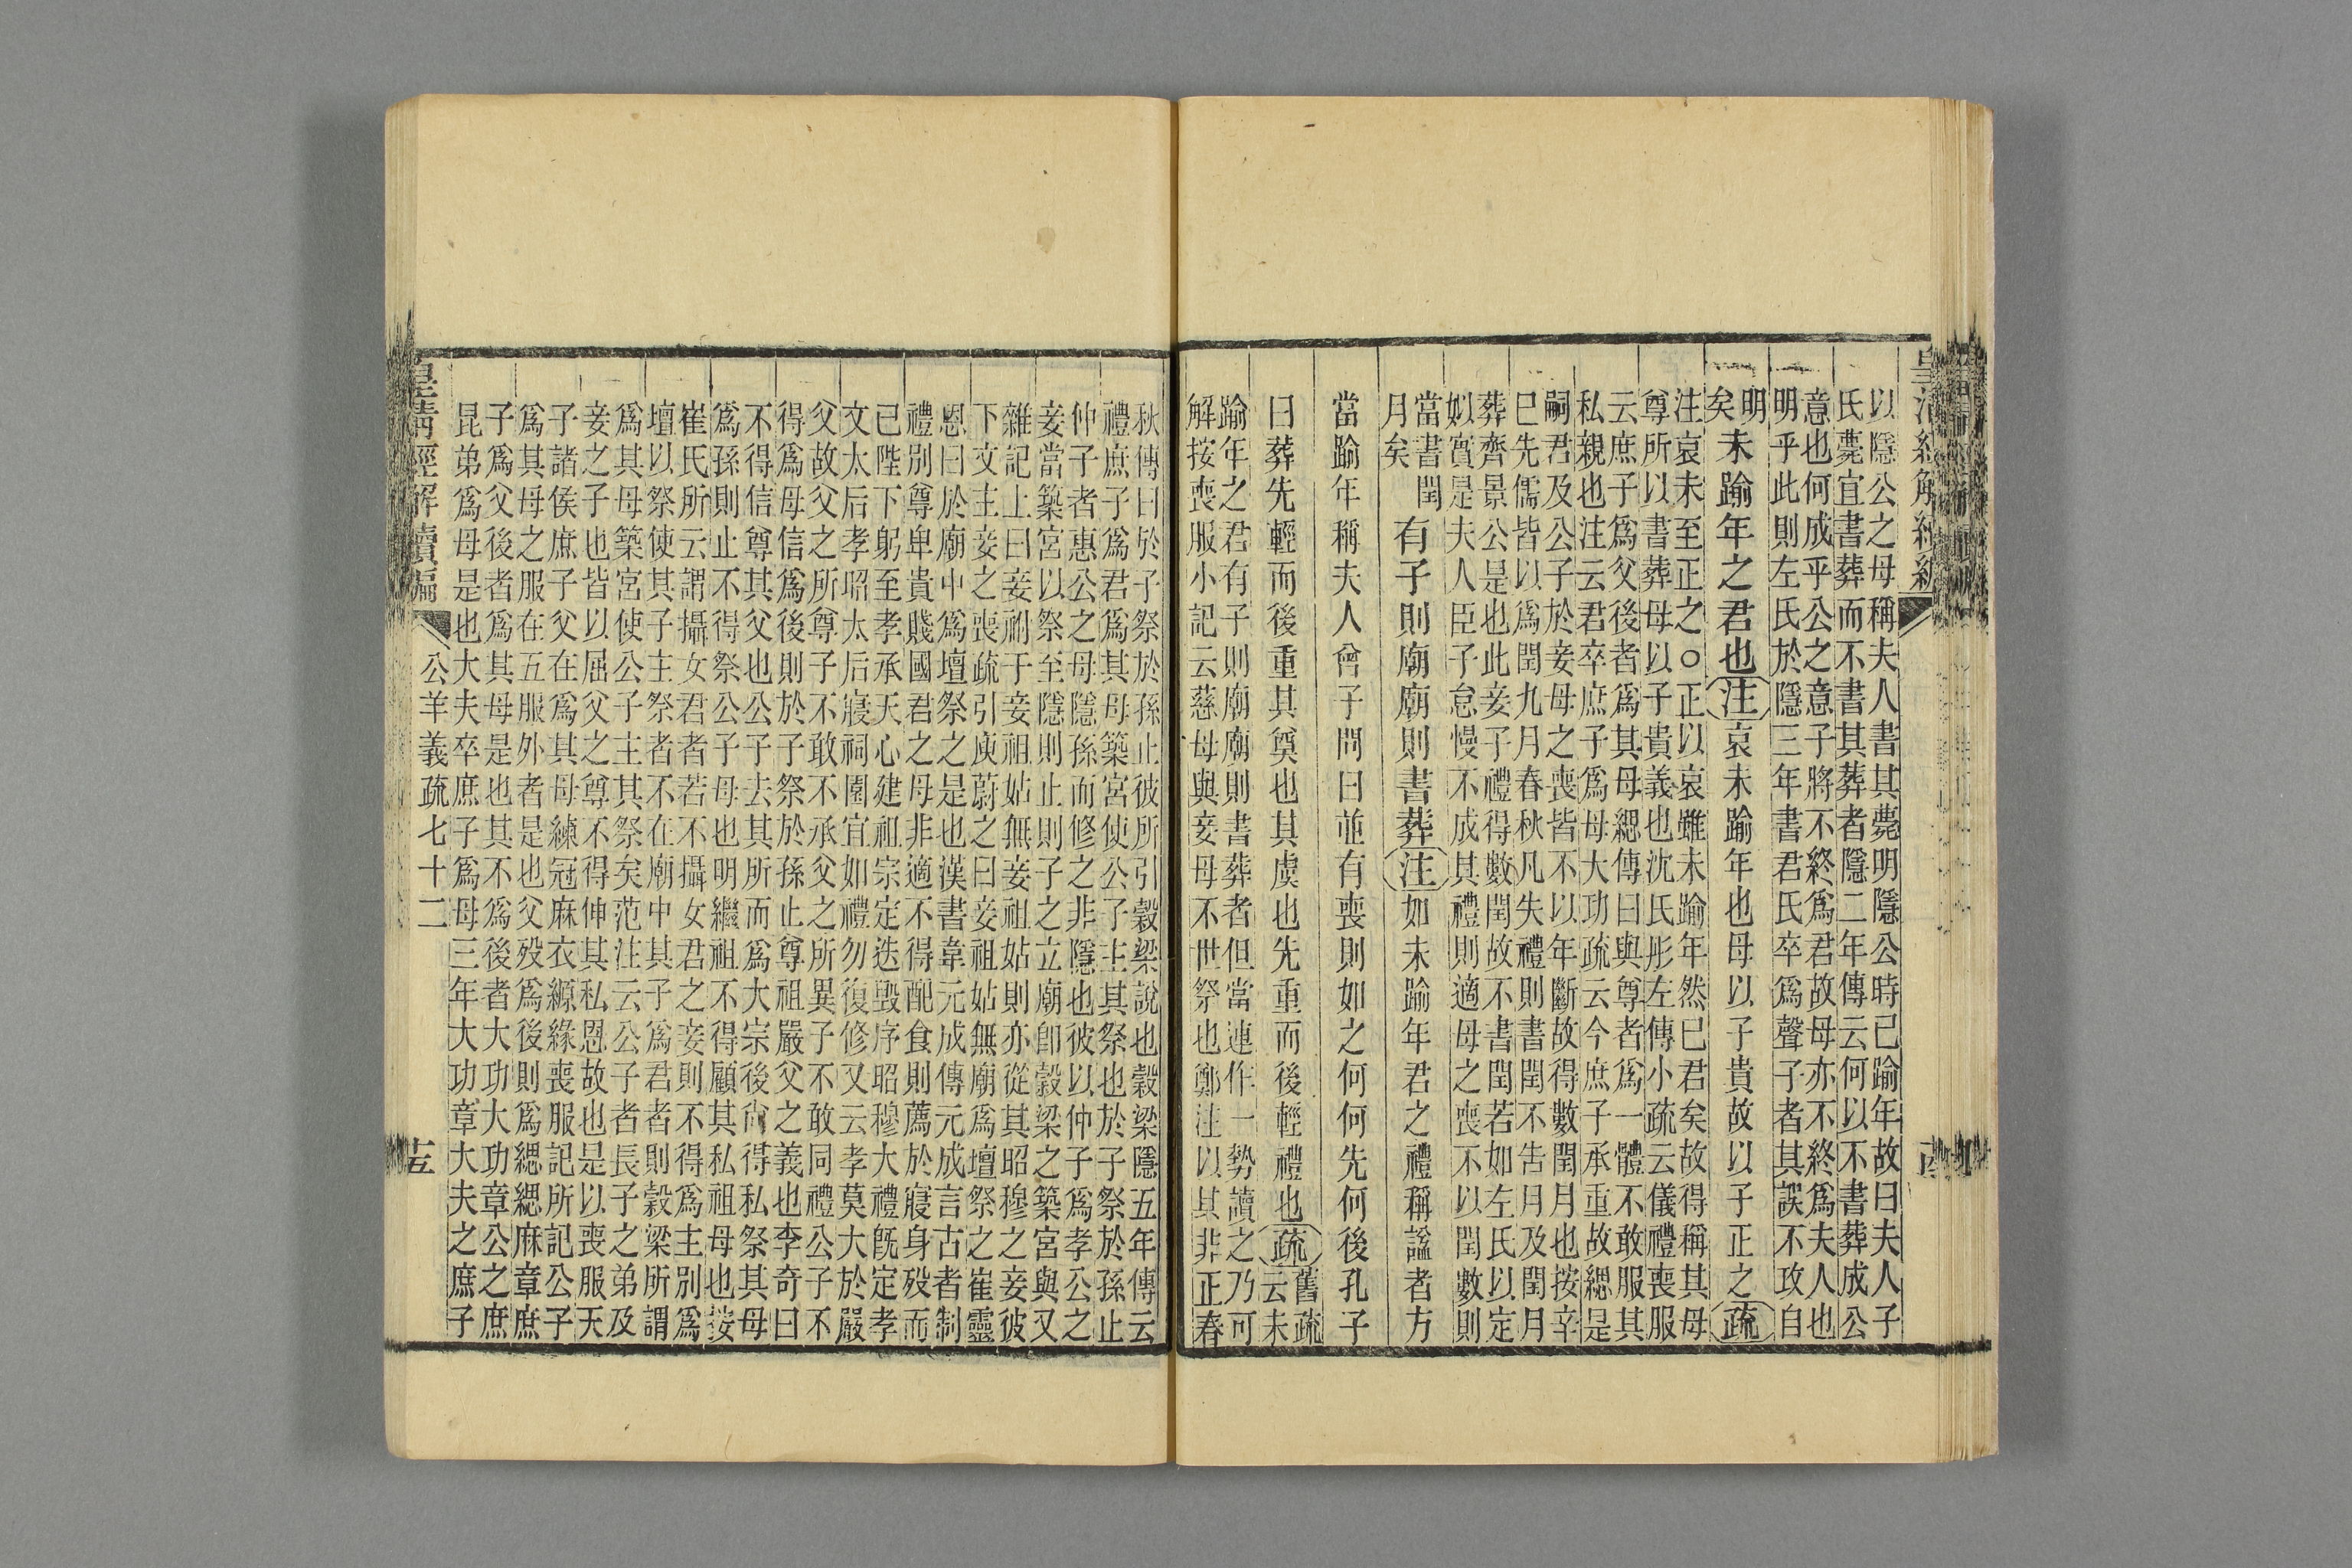 皇清經解續編
以隱公之母稱夫人書其薨明隱公時已踰年故曰夫人子
氏薨宜書葬而不書其葬者隱二年傳云何以不書葬成公
意也何成乎公之意子將不終爲君故母亦不終爲夫人也
明乎此則左氏於隱三年書君氏卒爲聲子者其誤不攻自
明矣未踰年之君也注哀未踰年也母以子貴故以子正之疏
注哀未至正之○正以哀雖未踰年然已君矣故得稱其母
尊所以書葬母以子貴義也沈氏彤左傳小疏云儀禮喪服
云庶子爲父後者爲其母緦傳曰與尊者爲一體不敢服其
私親也注云君卒庶子爲母大功疏云今庶子承重故緦是
嗣君及公子於妾母之喪皆不以年斷故得數閏月也按辛
巳先儒皆以爲閏九月春秋凡失禮則書閏不告月及閏月
葬齊景公是也此妾子禮得數閏故不書閏若如左氏以定
姒實是夫人臣子怠慢不成其禮則適母之喪不以閏數則
當書閏月矣有子則廟廟則書葬注如未踰年君之禮稱諡者方
當踰年稱夫人曾子問曰並有喪則如之何何先何後孔子
曰葬先輕而後重其奠也其虞也先重而後輕禮也疏舊疏云未
踰年之君有子則廟廟則書葬者但當連作一勢讀之乃可
解按喪服小記云慈母與妾母不世祭也鄭注以其非正春
秋傳曰於子祭於孫止彼所引穀梁說也穀梁隱五年傳云
禮庶子爲君爲其母築宮使公子主其祭也於子祭於孫止
仲子者惠公之母隱孫而修之非隱也彼以仲子爲孝公之
妾當築宮以祭至隱則止則子之立廟卽穀梁之築宮與又
雜記上曰妾祔于妾祖姑無妾祖姑則亦從其昭穆之妾彼
下文主妾之喪疏引庾蔚之曰妾祖姑無廟爲壇祭之崔靈
恩曰於廟中爲壇祭之是也漢書韋元成傳元成言古者制
禮別尊卑貴賤國君之母非適不得配食則薦於寢身歿而
已陛下躬至孝承天心建祖宗定迭毀序昭穆大禮旣定孝
文太后孝昭太后寢祠園宜如禮勿復修又云孝莫大於嚴
父故父之所尊子不敢不承父之所異子不敢同禮公子不
得爲母信爲後則於子祭於孫止尊祖嚴父之義也李奇曰
不得信尊其父也公子去其所而爲大宗後尙得私祭其母
爲孫則止不得祭公子母也明繼祖不得顧其私祖母也按
崔氏所云謂攝女君者若不攝女君之妾則不得爲主別爲
壇以祭使其子主祭者不在廟中其子爲君者則穀梁所謂
爲其母築宮使公子主其祭矣范注云公子者長子之弟及
妾之子也皆以屈父之尊不得伸其私恩故也是以喪服天
子諸侯庶子父在爲其母練冠麻衣縓緣喪服記所記公子
爲其母之服在五服外者是也父歿爲後則爲緦緦麻章庶
子爲父後者爲其母是也其不爲後者大功大功章公之庶
昆弟爲母是也大夫卒庶子爲母三年大功章大夫之庶子
皇清經解續編 公羊義疏七十二 十五